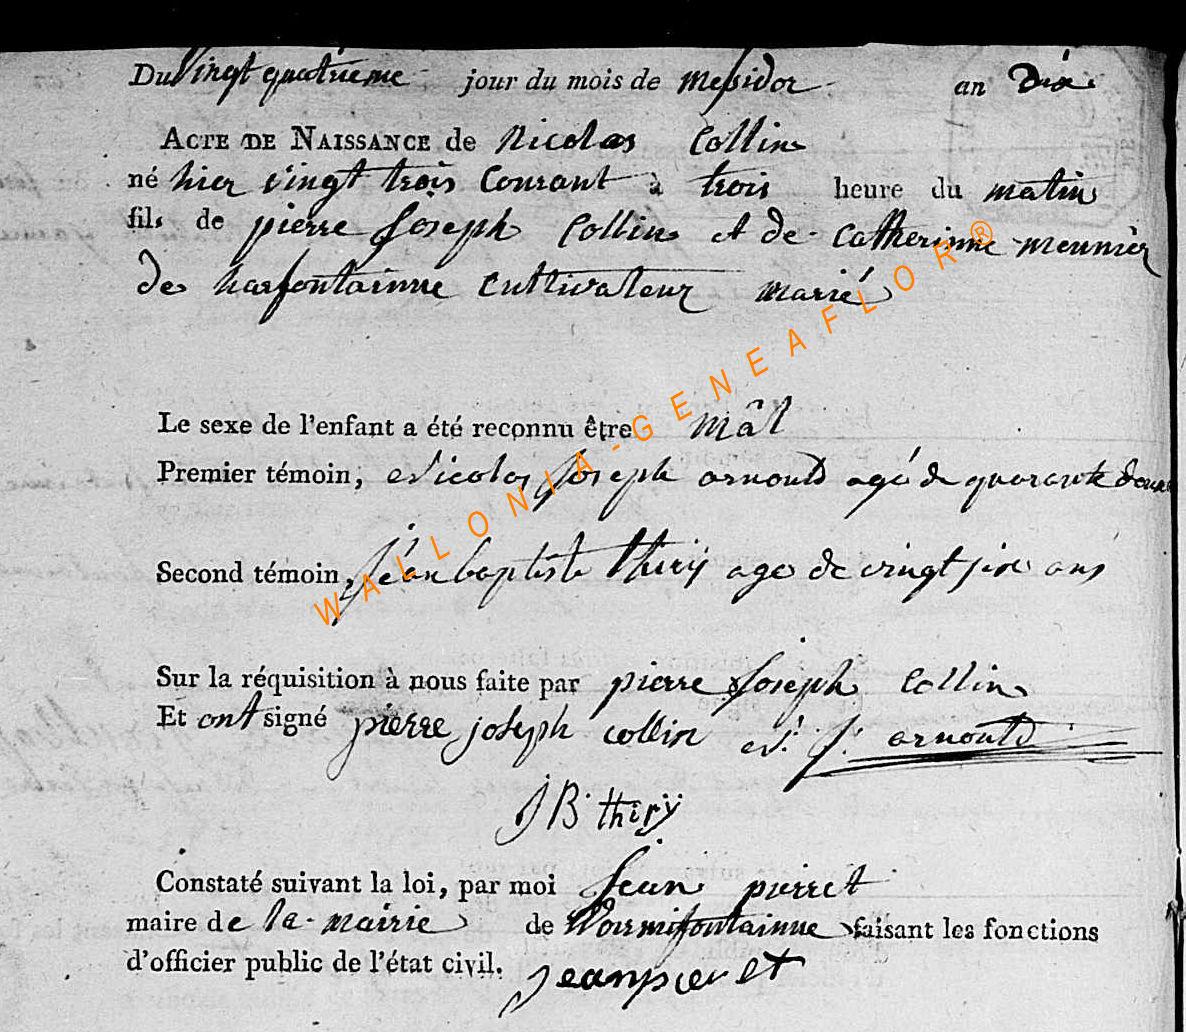 Du Vingt quatrieme jour du mois de messidor an Dix
ACTE DE NAISSANCE de Nicolas Collin
né hier vingt trois Courant à trois heure du matin
fils de pierre Joseph Collin et de Catherinne meunier
de harfontainne Cultivateur marié
Le sexe de l'enfant a été reconnu être mâl
Premier témoin, Nicolas Joseph arnould agé de quarante deux
Second témoin, Jéan baptiste thiry age de vingt six ans
Sur la réquisition à nous faite par pierre Joseph Collin
Et ont signé pierre joseph collin N. J. arnould
J B thirÿ
Constaté suivant la loi, par moi Jean pierret
maire de la mairie de Wourmifontainne faisant les fonctions
d'officier public de l'état civil. Jean pierret
WALLONIA-GENEAFLOR®